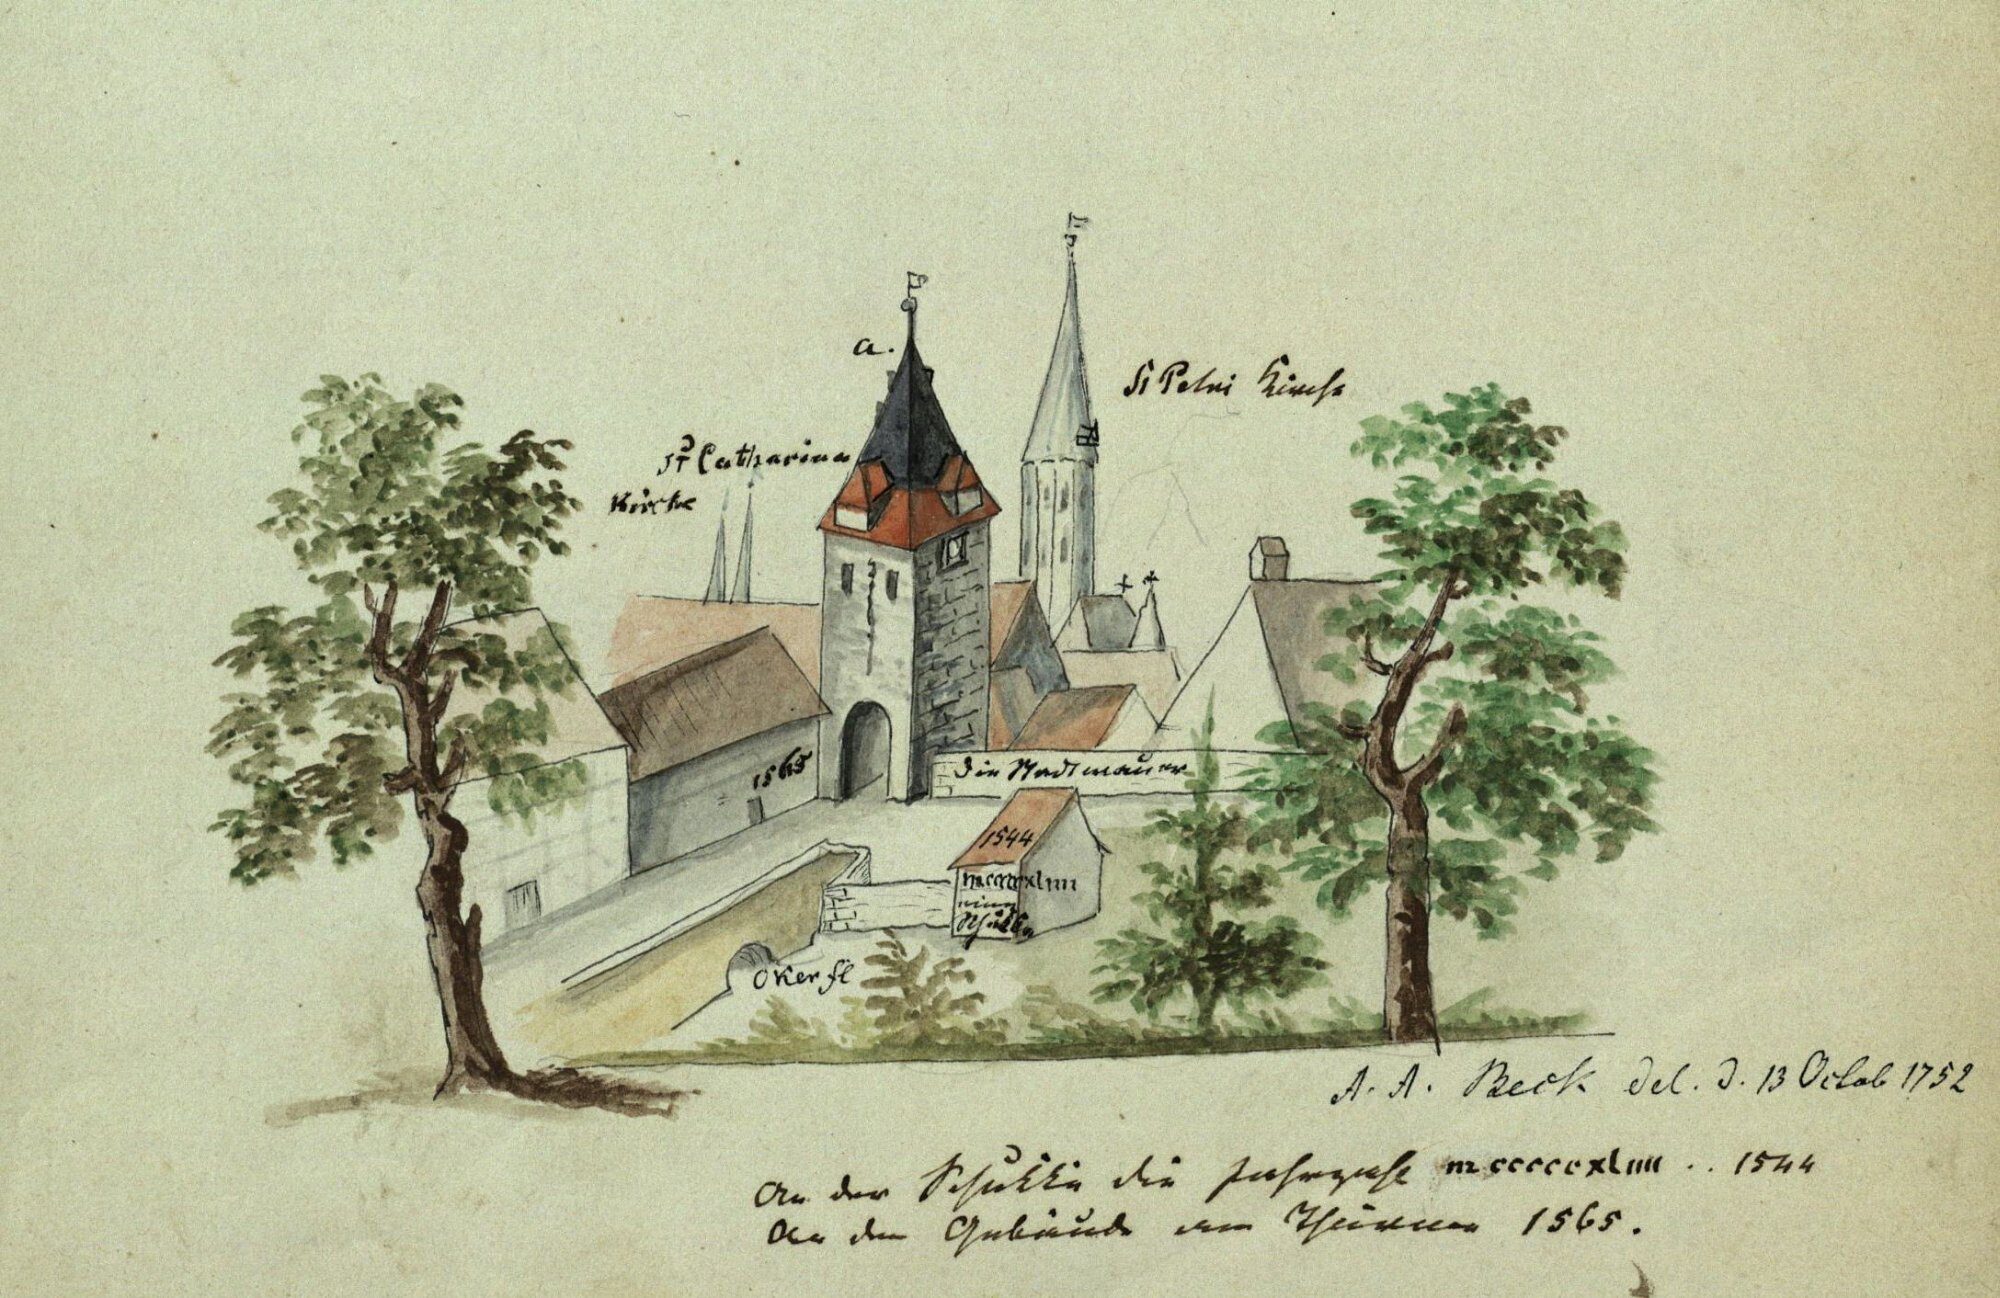 a.
St Petri Kirche
St Catharinen
Kirche
1565
die Stadtmauer
1544
mcccccxliiii
eine
Schükke
Oker fl
A. A. Beck del. d. 13 Octob 1752
An der Schükke die Jahrzahl mcccccxliiii .. 1544
An dem Gebäude am Thurme 1565.